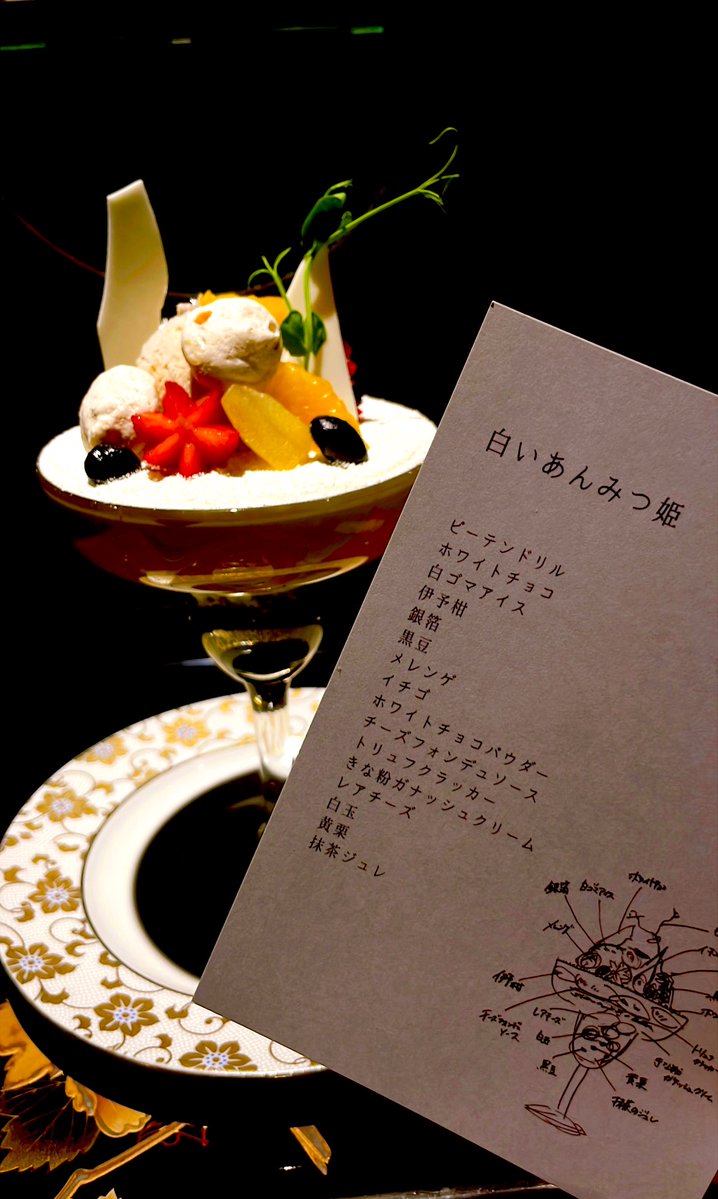 白いあんみつ姫
ピーテンドリル
ホワイトチョコ
白ゴマアイス
伊予柑
銀箔
黒豆
メレンゲ
イチゴ
ホワイトチョコパウダー
チーズフォンデュソース
トリュフクラッカー
きな粉ガナッシュクリーム
レアチーズ
白玉
黄栗
抹茶ジュレ
銀箔
白ゴマアイス
メレンゲ
伊予柑
レアチーズ
チーズフォンデュ
ソース
白玉
黒豆
黄栗
抹茶ジュレ